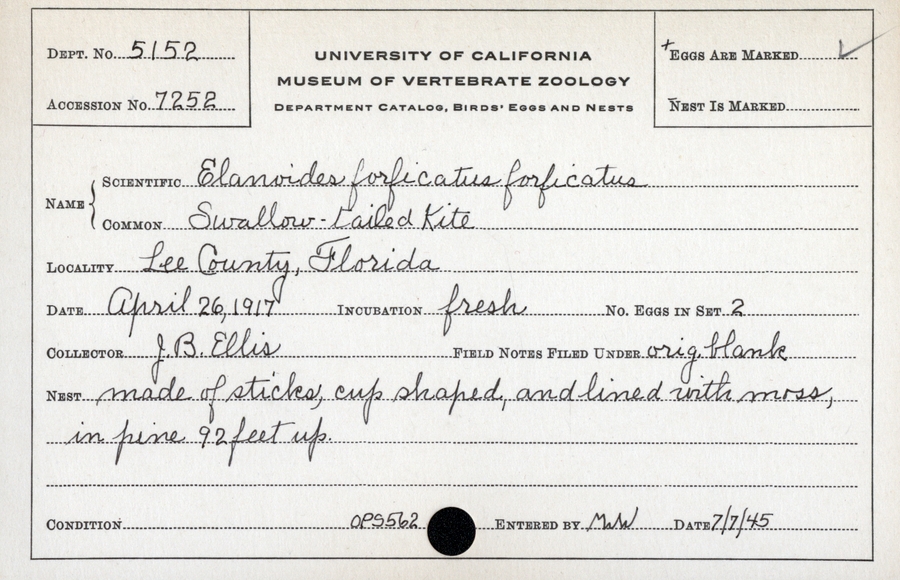 DEPT. NO. 5152
ACCESSION NO. 7252
UNIVERSITY OF CALIFORNIA
MUSEUM OF VERTEBRATE ZOOLOGY
DEPARTMENT CATALOG, BIRDS' EGGS AND NESTS
+EGGS ARE MARKED ✓
NEST IS MARKED
NAME
SCIENTIFIC Elanoides forficatus forficatus
COMMON Swallow-tailed Kite
LOCALITY Lee County, Florida
DATE April 26, 1917 INCUBATION fresh NO. EGGS IN SET 2
COLLECTOR J. B. Ellis FIELD NOTES FILED UNDER orig. blank
NEST made of sticks, cup shaped, and lined with moss,
in pine 92 feet up.
CONDITION OPS562 ENTERED BY DATE 7/7/45